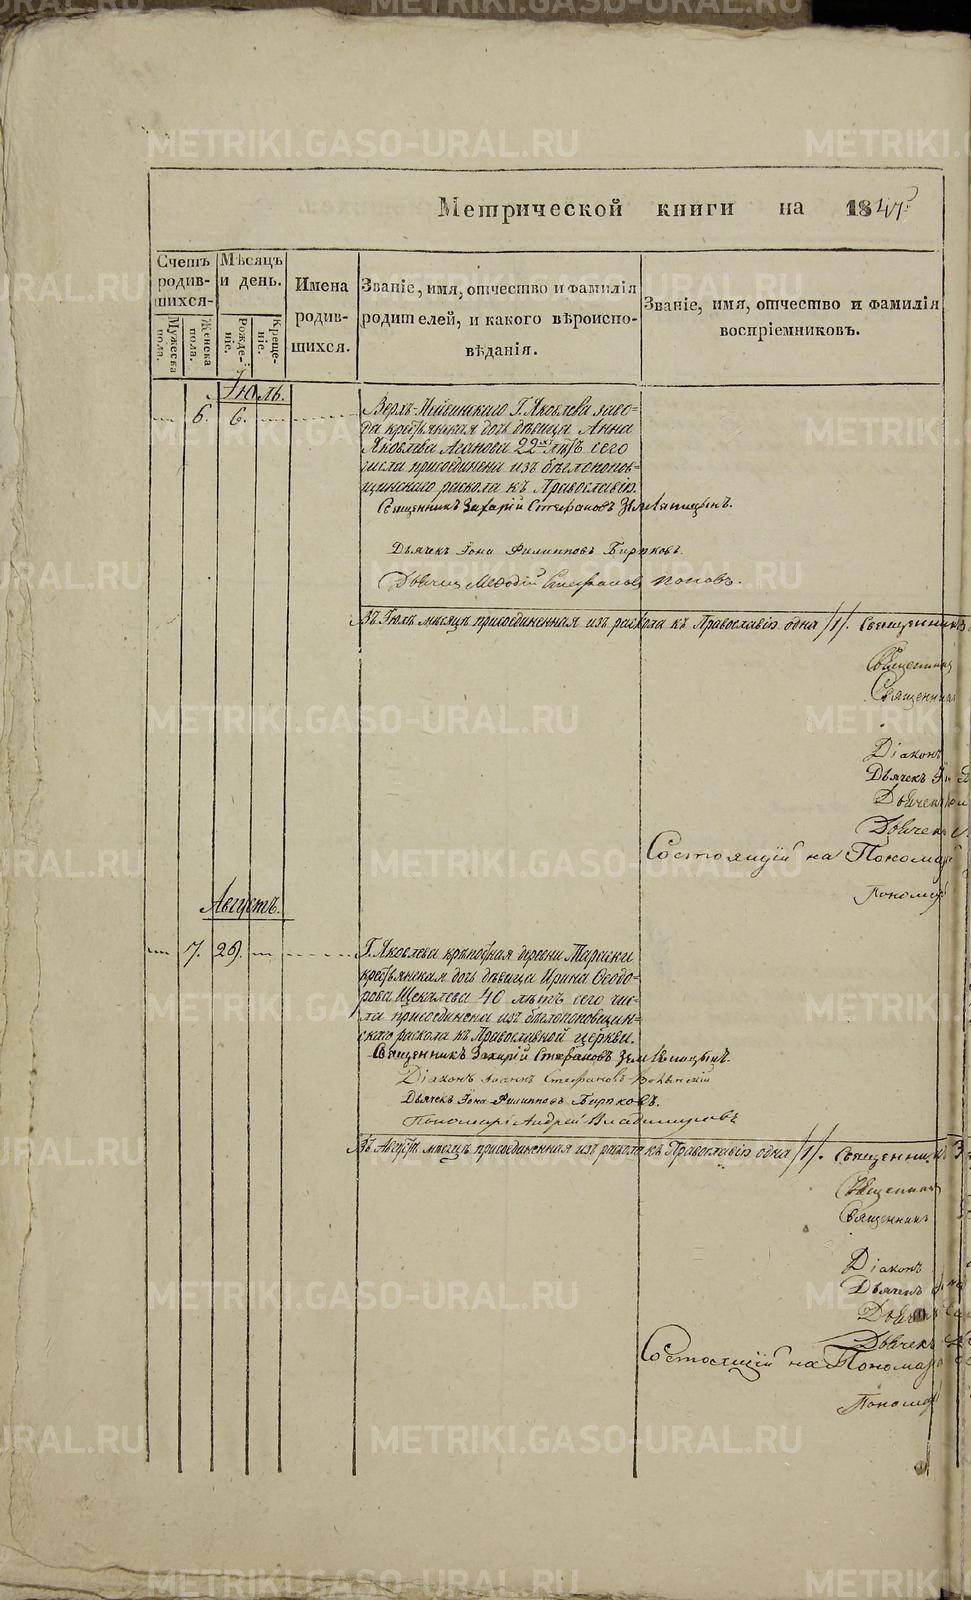 METRIKI.GASO-URAL.RU
Метрической книги на 1847
Счетъ родив-шихся- Мѣсяцъ и день. Имена родив-шихся. Званіе, имя, отчество и фамилія родителей, и какого вѣроиспо-вѣданія. Званіе, имя, отчество и фамилія воспріемниковъ.
Мужеска пола. Женска пола. Рожде-ніе. Креще-ніе.
Іюль.
6. 6. Верхъ-Нейвинскаго Г. Яковлева заво-
да крестьянская дочь дѣвица Анна
Яковлева Аганова 22хъ лѣтъ сего
числа присоединена изъ бѣглопопов-
щинскаго раскола къ Православію.
Священникъ Захарій Стефановъ Земляницынъ.
Дьячекъ Іона Филипповъ Бирюковъ.
Дьячекъ Меѳодій Стефановъ Поповъ.
Въ Іюлѣ мѣсяцѣ присоединенная изъ раскола къ Православію одна /1/. Священникъ З
Священник
Священник
Діаконъ
Дьячекъ Іо
Дьячекъ
Дьячекъ
Состоящій на Пономар
Пономар
Августъ.
7. 29. Г. Яковлева крѣпостная деревни Тараски
крестьянская дочь дѣвица Ирина Ѳеодо-
рова Щекалева 40 лѣтъ сего чис-
ла присоединена изъ бѣглопоповщин-
скаго раскола къ Православной церкви.
Священникъ Захарій Стефановъ Земляницынъ.
Діаконъ Іоаннъ Стефановъ
Дьячекъ Іона Филипповъ Бирюковъ.
Пономарь Андрей Владимировъ
Въ Августѣ мѣсяцѣ присоединенная изъ раскола къ Православію одна /1/. Священникъ З
Священник
Священникъ
Діаконъ
Дьячекъ
Дьячекъ
Дьячекъ
Состоящій на Пономар
Пономар